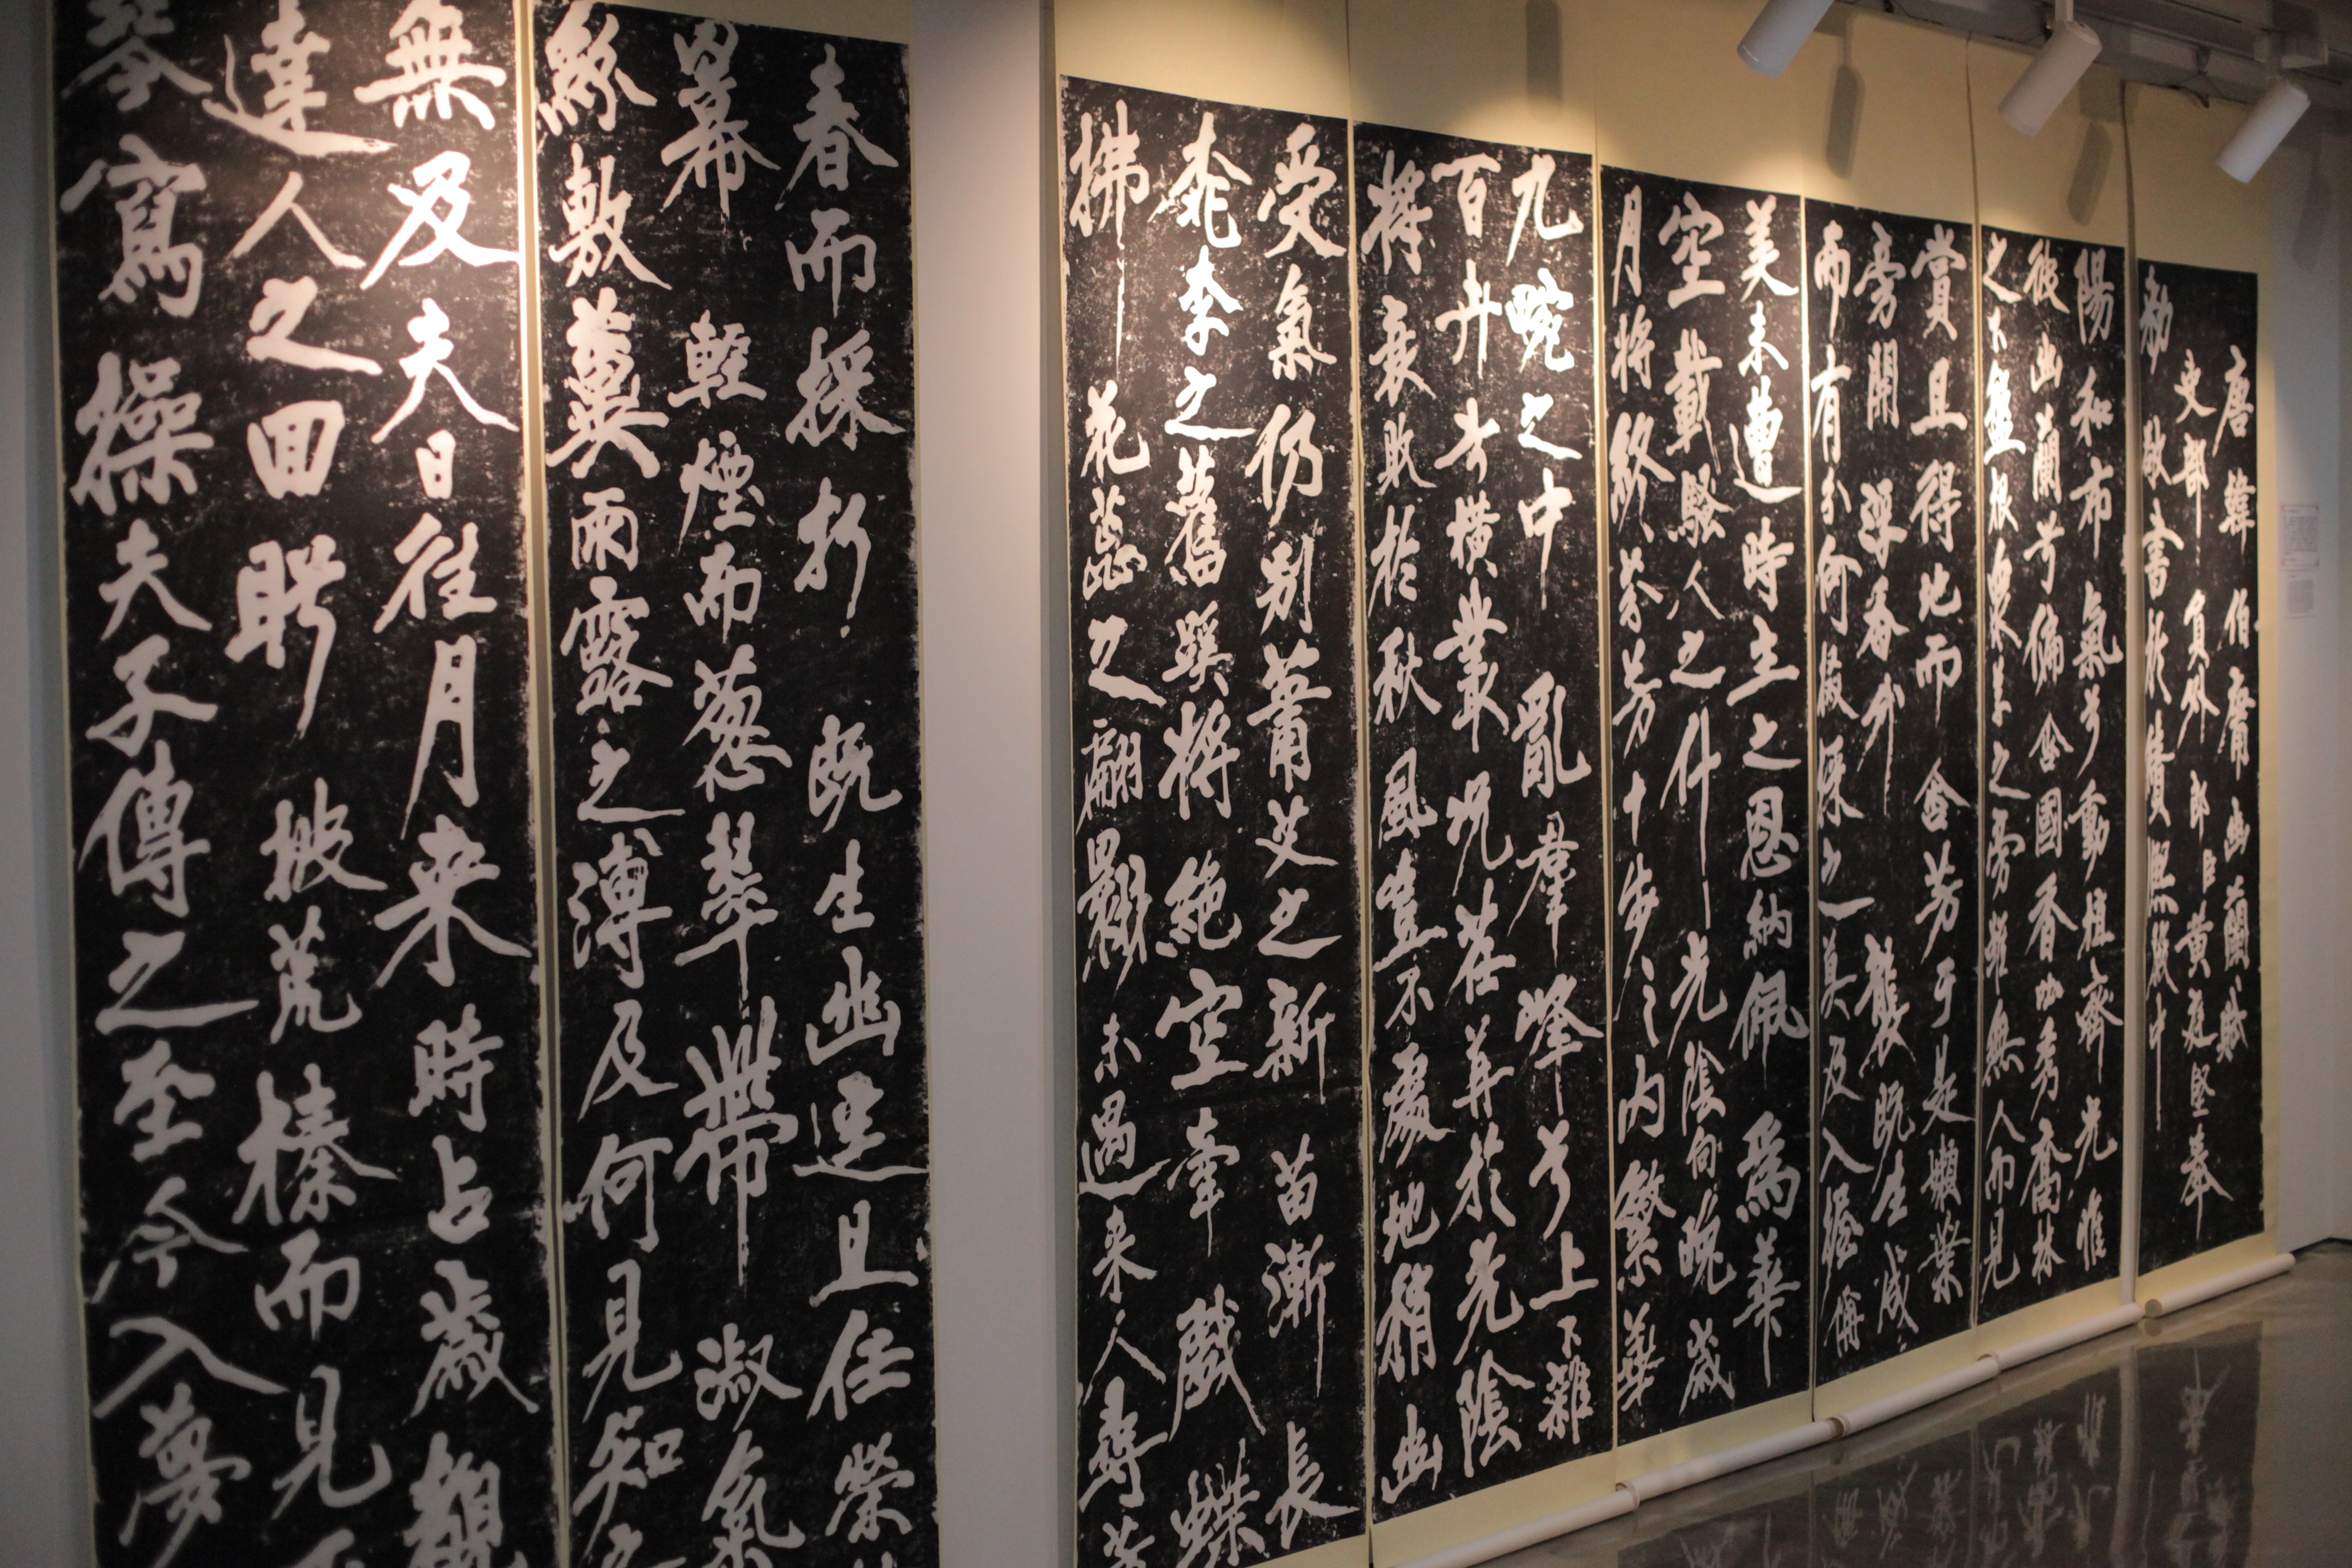 唐韓伯庸幽蘭賦
吏部員外郎臣黃庭堅奉
勅敬書於績熙殿中
陽和布氣兮動植齊光惟
彼幽蘭兮偏含國香吐秀喬林
之下盤根眾草之旁雖無人而見
賞且得地而含芳于是嫩葉
旁開浮香外襲既生成
而有分何嚴採之莫及入握稱
美未遭時主之恩納佩爲華
空載騷人之什光陰向晚歲
月將終芬芳十步之內繁華
九畹之中亂群峰兮上下雜
百卉兮橫叢況荏苒於光陰
將衰敗於秋風豈不處地稍幽
受氣仍別蕭艾之新苗漸長
桃李之舊蹊將絕空牽戲蝶
拂花蕊之翩翾未遇來人尋芳
春而採折既生幽逕且任榮
冪輕煙而葱翠帶淑氣
絲敷蓂雨露之溥及何見知之
無及夫日往月來時占歲觀
達人之回眄披荒榛而見
琴寫操夫子傳之至今入夢